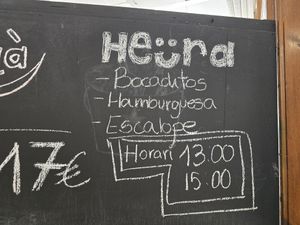 à
Heüra
- Bocaditos
- Hamburguesa
- Escalope
17€
Horari 13:00
15:00